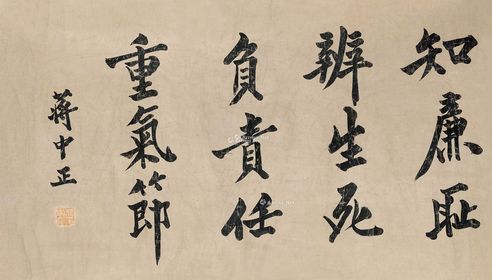 知廉耻
辨生死
負責任
重氣節
蔣中正